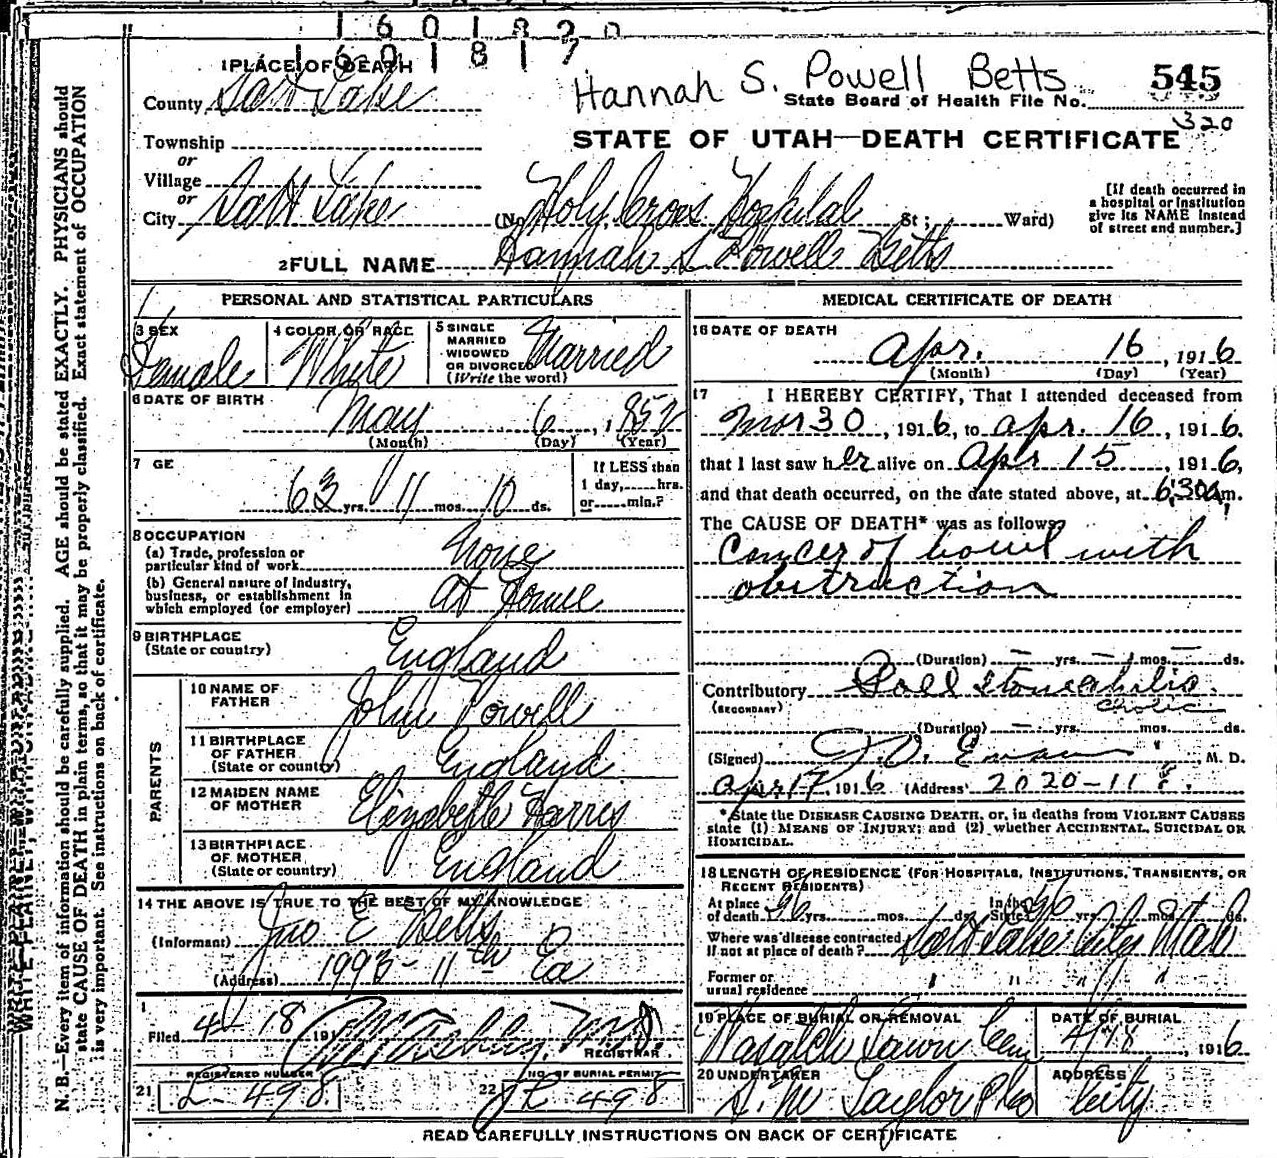 1601820
1601817
1 PLACE OF DEATH
Hannah S. Powell Betts
545
State Board of Health File No.
320
County Salt Lake
STATE OF UTAH—DEATH CERTIFICATE
Township
or
Village
or
City Salt Lake (No. Holy Cross Hospital St.; Ward)
[If death occurred in
a hospital or institution
give its NAME instead
of street and number.]
2 FULL NAME Hannah S Powell Betts
PERSONAL AND STATISTICAL PARTICULARS
3 SEX
Female
4 COLOR OR RACE
White
5 SINGLE
MARRIED
WIDOWED
OR DIVORCED
(Write the word)
Married
6 DATE OF BIRTH
May 6, 1852
(Month) (Day) (Year)
7 GE
63 yrs. 11 mos. 10 ds.
If LESS than
1 day,.....hrs.
or.....min.?
8 OCCUPATION
(a) Trade, profession or
particular kind of work None
(b) General nature of industry,
business, or establishment in
which employed (or employer) At Home
9 BIRTHPLACE
(State or country) England
PARENTS
10 NAME OF
FATHER John Powell
11 BIRTHPLACE
OF FATHER
(State or country) England
12 MAIDEN NAME
OF MOTHER Elizabeth Harris
13 BIRTHPLACE
OF MOTHER
(State or country) England
14 THE ABOVE IS TRUE TO THE BEST OF MY KNOWLEDGE
(Informant) Jno E Betts
(Address) 1993-11th Ea
Filed 4-18 191
M.D.
REGISTRAR
REGISTERED NUMBER
21 L-498
NO. OF BURIAL PERMIT
22 L 498
MEDICAL CERTIFICATE OF DEATH
16 DATE OF DEATH
Apr. 16, 1916
(Month) (Day) (Year)
17 I HEREBY CERTIFY, That I attended deceased from
Mar 30, 1916, to Apr. 16, 1916.
that I last saw her alive on Apr 15, 1916,
and that death occurred, on the date stated above, at 6:30 a.m.
The CAUSE OF DEATH* was as follows:
Cancer of bowel with
obstruction
(Duration) yrs. mos. ds.
Contributory Gall stone
(SECONDARY) cholic
(Duration) yrs. mos. ds.
(Signed) Evans, M. D.
Apr 17, 1916 (Address) 2020-11 E.
*State the DISEASE CAUSING DEATH, or, in deaths from VIOLENT CAUSES
state (1) MEANS OF INJURY; and (2) whether ACCIDENTAL, SUICIDAL OR
HOMICIDAL.
18 LENGTH OF RESIDENCE (FOR HOSPITALS, INSTITUTIONS, TRANSIENTS, OR
RECENT RESIDENTS)
At place
of death 56 yrs. mos. ds. In the State 56 yrs. mos. ds.
Where was disease contracted
if not at place of death? Salt Lake City Utah
Former or
usual residence " " " "
19 PLACE OF BURIAL OR REMOVAL
Wasatch Lawn Cem
DATE OF BURIAL
4/18, 1916
20 UNDERTAKER
S. M. Taylor & Co
ADDRESS
City
READ CAREFULLY INSTRUCTIONS ON BACK OF CERTIFICATE
N. B.—Every item of information should be carefully supplied. AGE should be stated EXACTLY. PHYSICIANS should
state CAUSE OF DEATH in plain terms, so that it may be properly classified. Exact statement of OCCUPATION
is very important. See instructions on back of certificate.